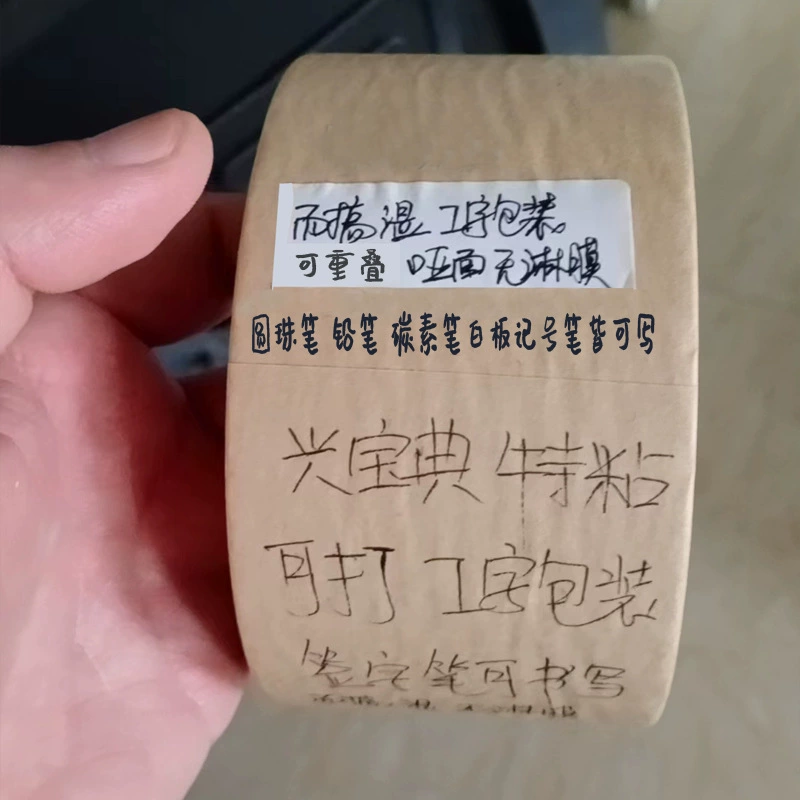 耐搞温 工字包装。
可重叠 哑面无淋膜
圆珠笔 铅笔 碳素笔白板记号笔皆可写
兴宝典 特粘
可打 工字包装
签字笔可书写